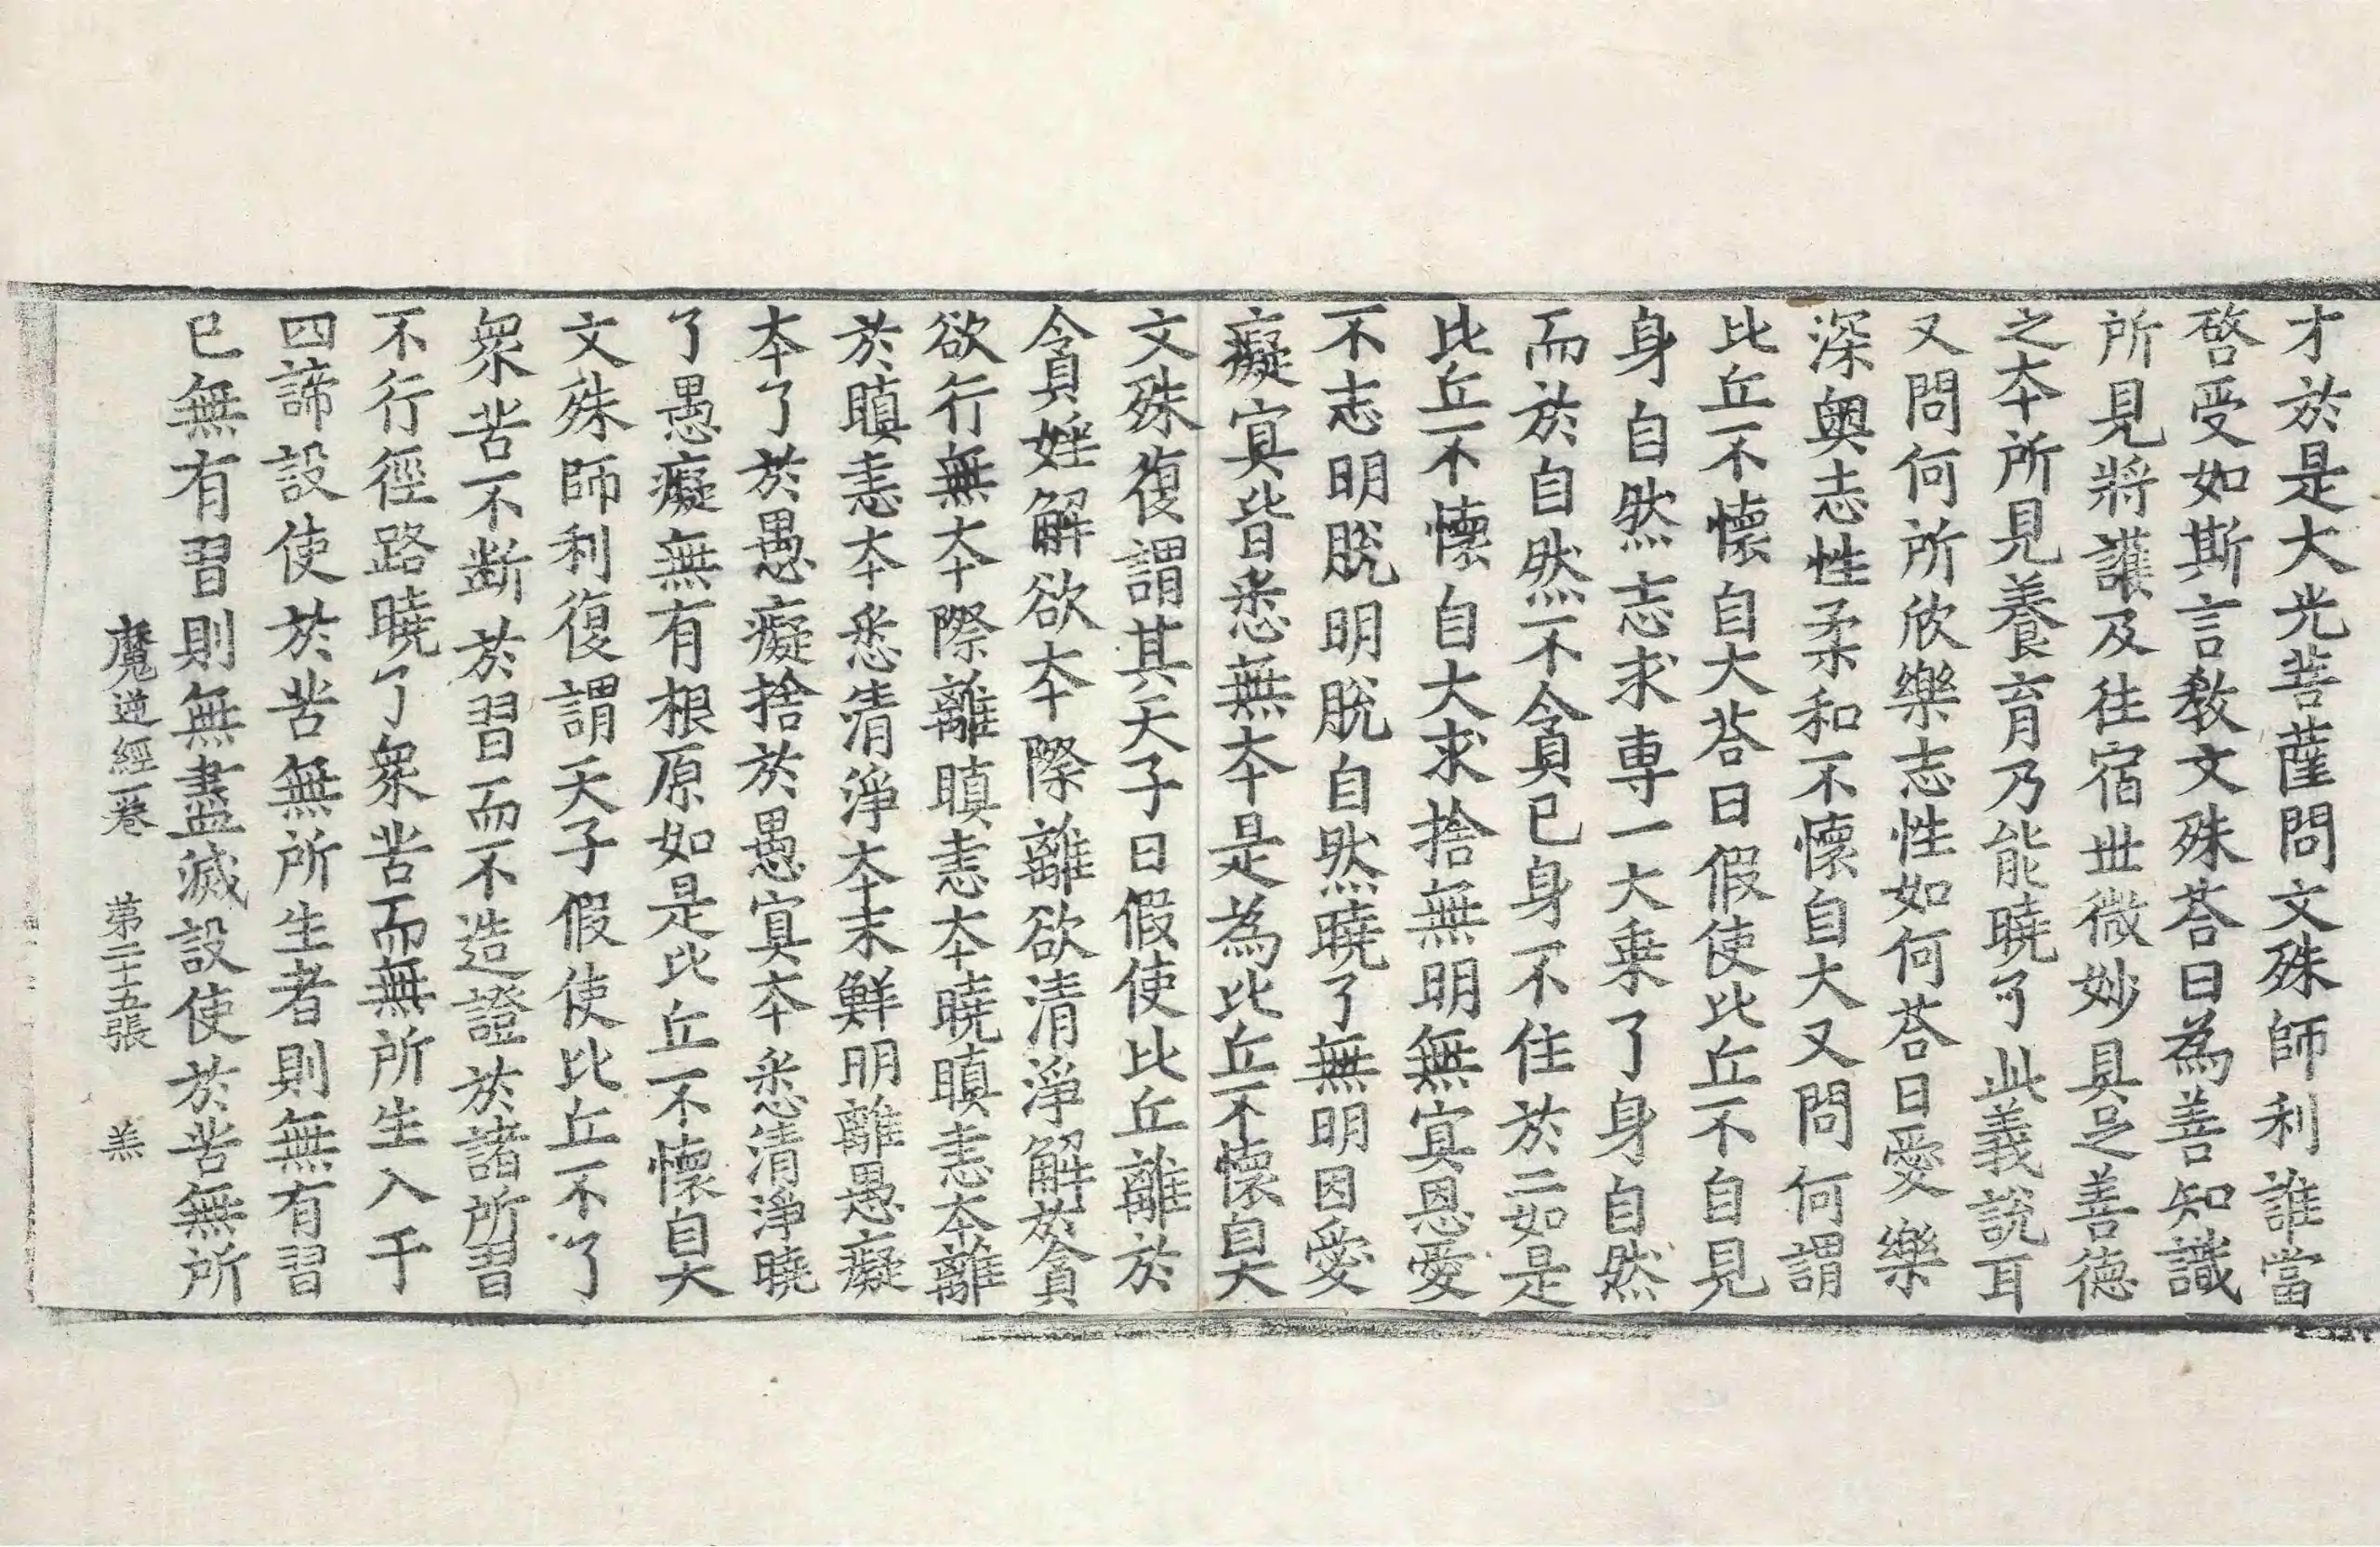 才於是大光菩薩問文殊師利誰當
啓受如斯言教文殊荅曰為善知識
所見將護及往宿世微妙具足善德
之夲所見養育乃能曉了此義說耳
又問何所欣樂志性如何荅曰愛樂
深奧志性柔和不懷自大又問何謂
比丘不懷自大荅曰假使比丘不自見
身自然志求專一大乗了身自然
而於自然不貪已身不住於二如是
比丘不懷自大求捨無明無冥恩愛
不志明脫明脫自然曉了無明因愛
癡冥皆悉無夲是為比丘不懷自大
文殊復謂其天子曰假使比丘離於
貪婬解欲夲際離欲清淨解於貪
欲行無夲際離瞋恚夲曉瞋恚夲離
於瞋恚夲悉清淨夲末鮮明離愚癡
夲了於愚癡捨於愚冥夲悉清淨曉
了愚癡無有根原如是比丘不懷自大
文殊師利復謂天子假使比丘不了
衆苦不断於習而不造證於諸所習
不行徑路曉了衆苦而無所生入于
四諦設使於苦無所生者則無有習
已無有習則無盡滅設使於苦無所
魔逆經一卷 第二十五張 羔